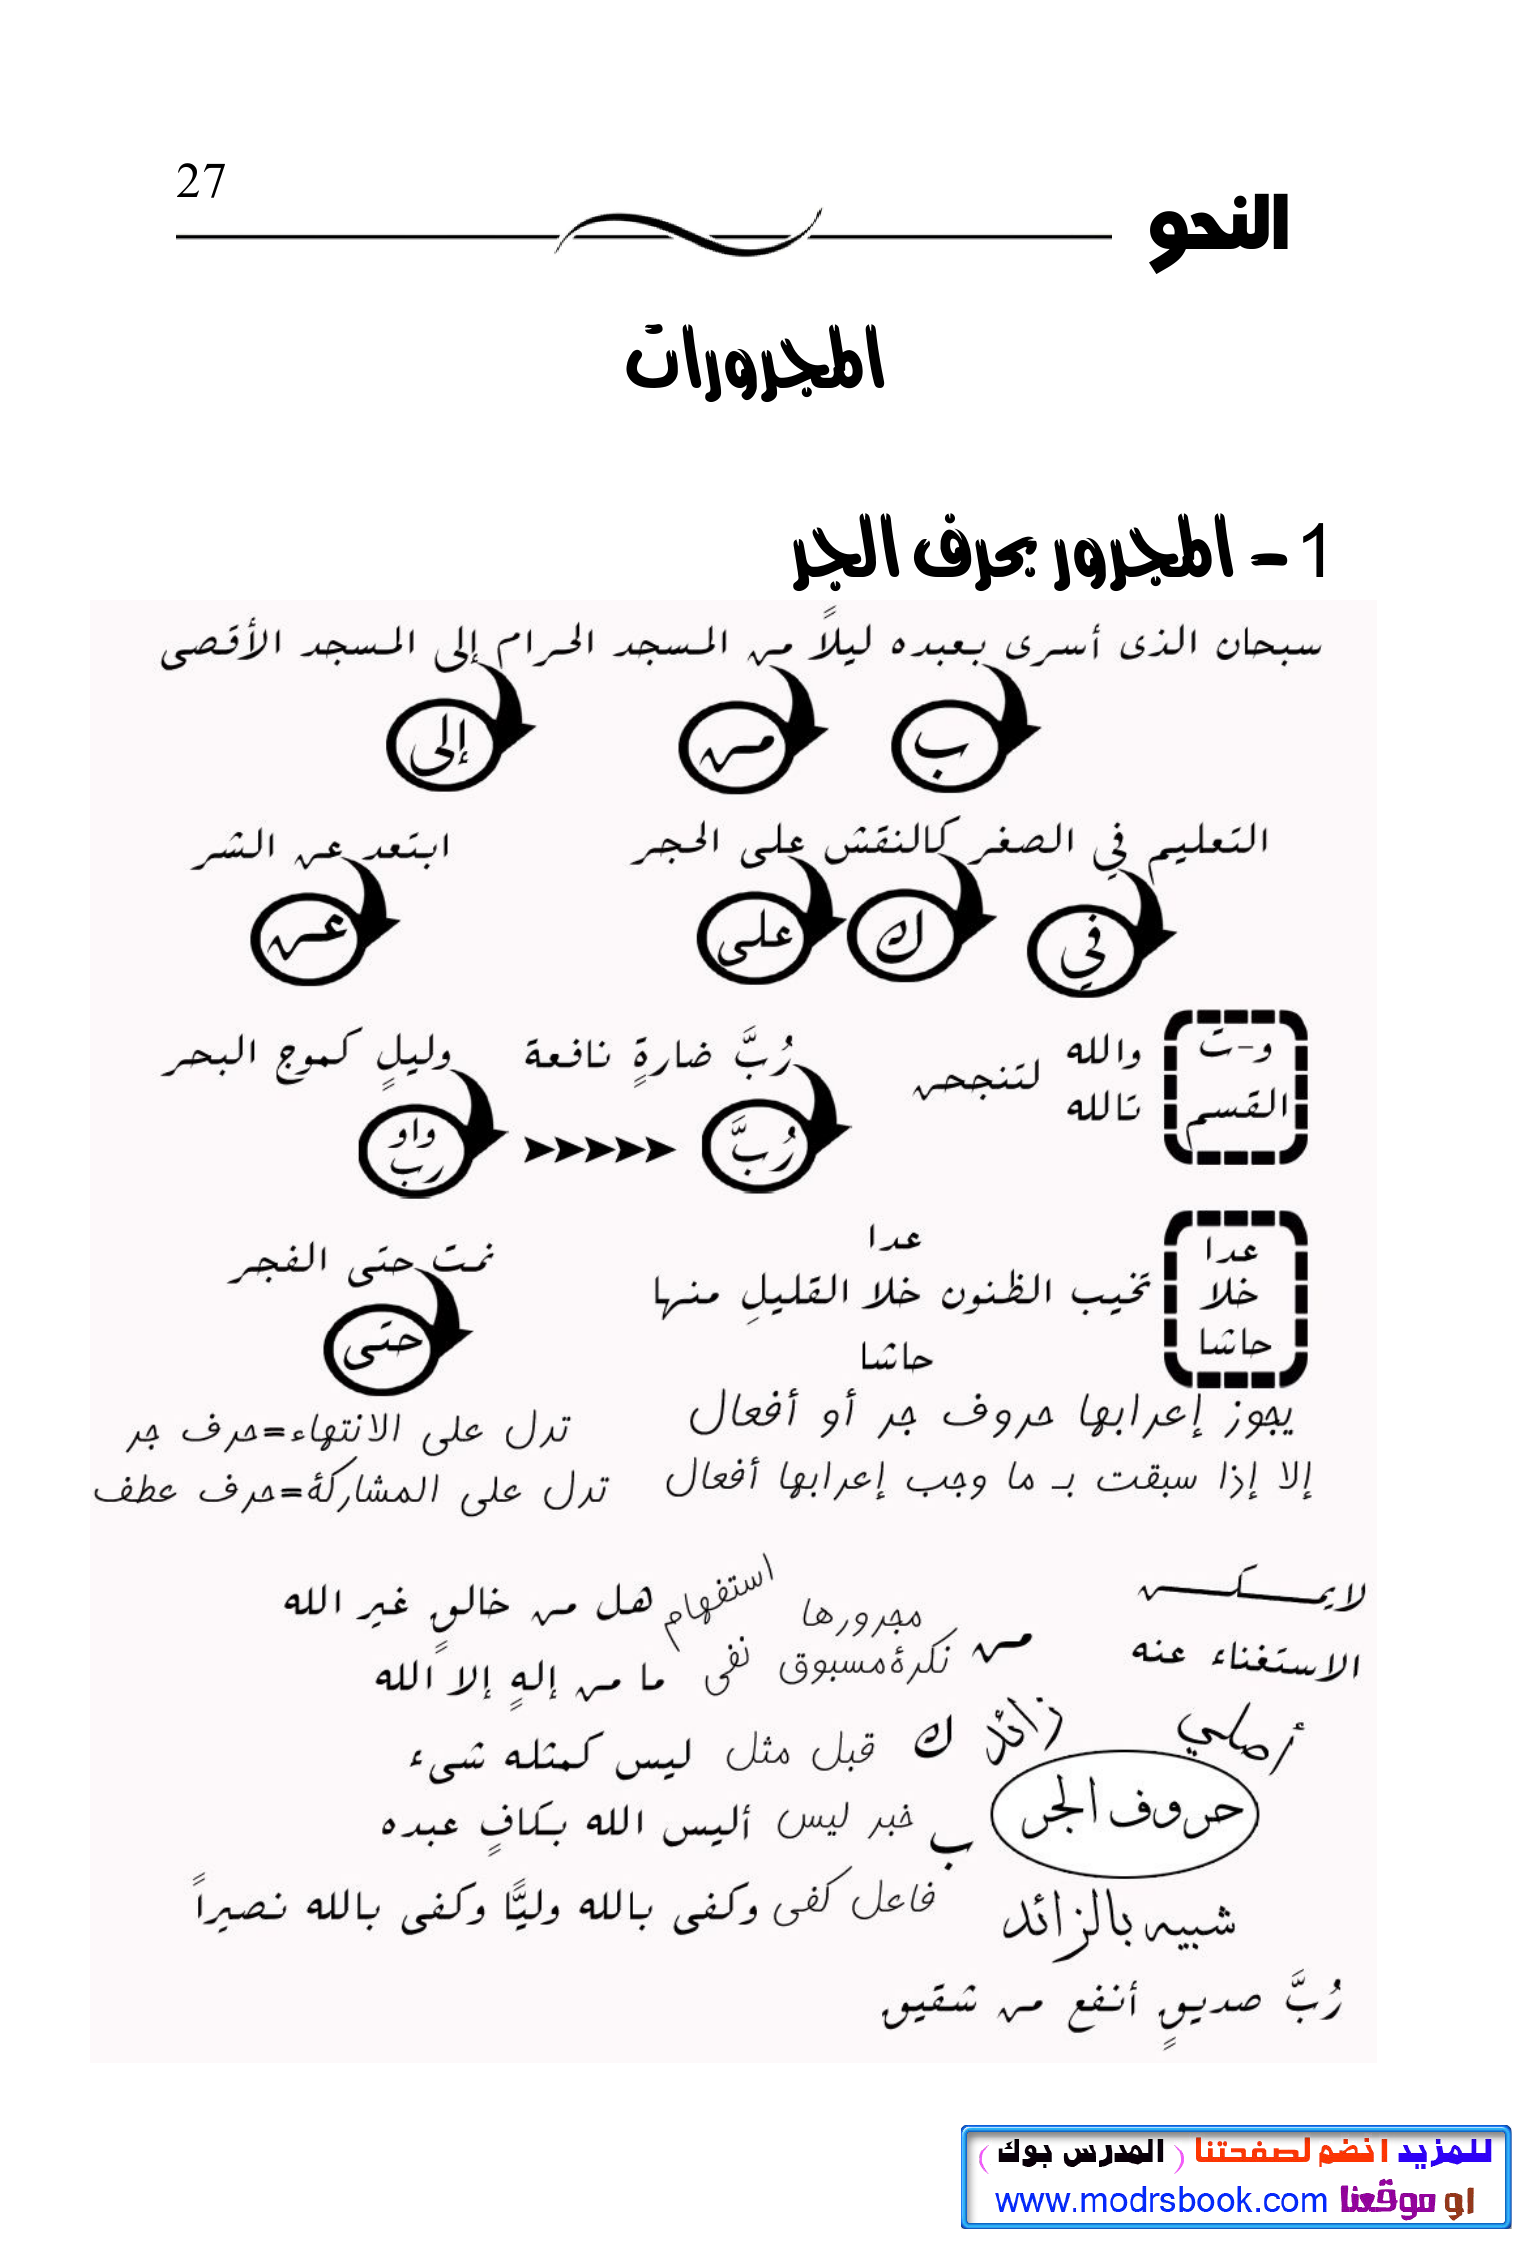 27
النحو
المجرورات
1 - المجرور بحرف الجر
سبحان الذى أسرى بعبده ليلاً من المسجد الحرام إلى المسجد الأقصى
ب من إلى
التعليم في الصغر كالنقش على الحجر ابتعد عن الشر
في ك على عن
و-ت
القسم
والله
تالله
لتنجحن
رُبَّ ضارةٍ نافعة وليلٍ كموج البحر
رُبَّ
واو
رب
عدا
خلا
حاشا
عدا
تخيب الظنون خلا القليلِ منها
حاشا
نمت حتى الفجر
حتى
يجوز إعرابها حروف جر أو أفعال
إلا إذا سبقت بـ ما وجب إعرابها أفعال
تدل على الانتهاء=حرف جر
تدل على المشاركة=حرف عطف
لايمكن
الاستغناء عنه
أصلي
حروف الجر
زائد
من
مجرورها
نكرة مسبوق
استفهام هل من خالقٍ غير الله
نفى ما من إلهٍ إلا الله
ك قبل مثل ليس كمثله شىء
ب خبر ليس أليس الله بكافٍ عبده
فاعل كفى وكفى بالله وليًّا وكفى بالله نصيراً
شبيه بالزائد
رُبَّ صديقٍ أنفع من شقيق
للمزيد انضم لصفحتنا ( المدرس بوك )
او موقعنا www.modrsbook.com